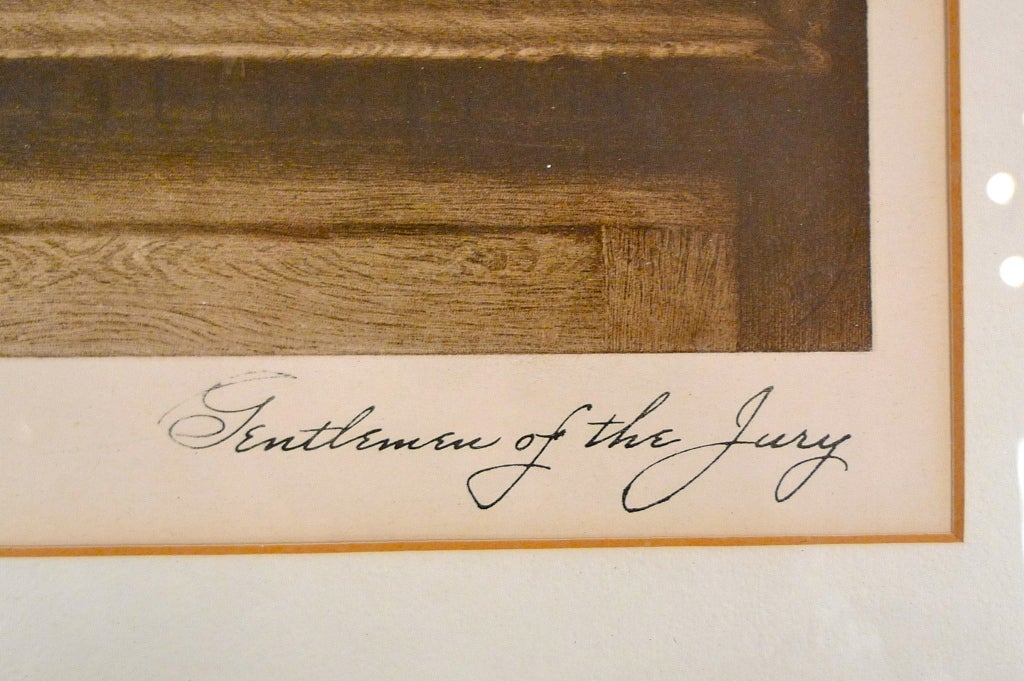 Gentlemen of the Jury